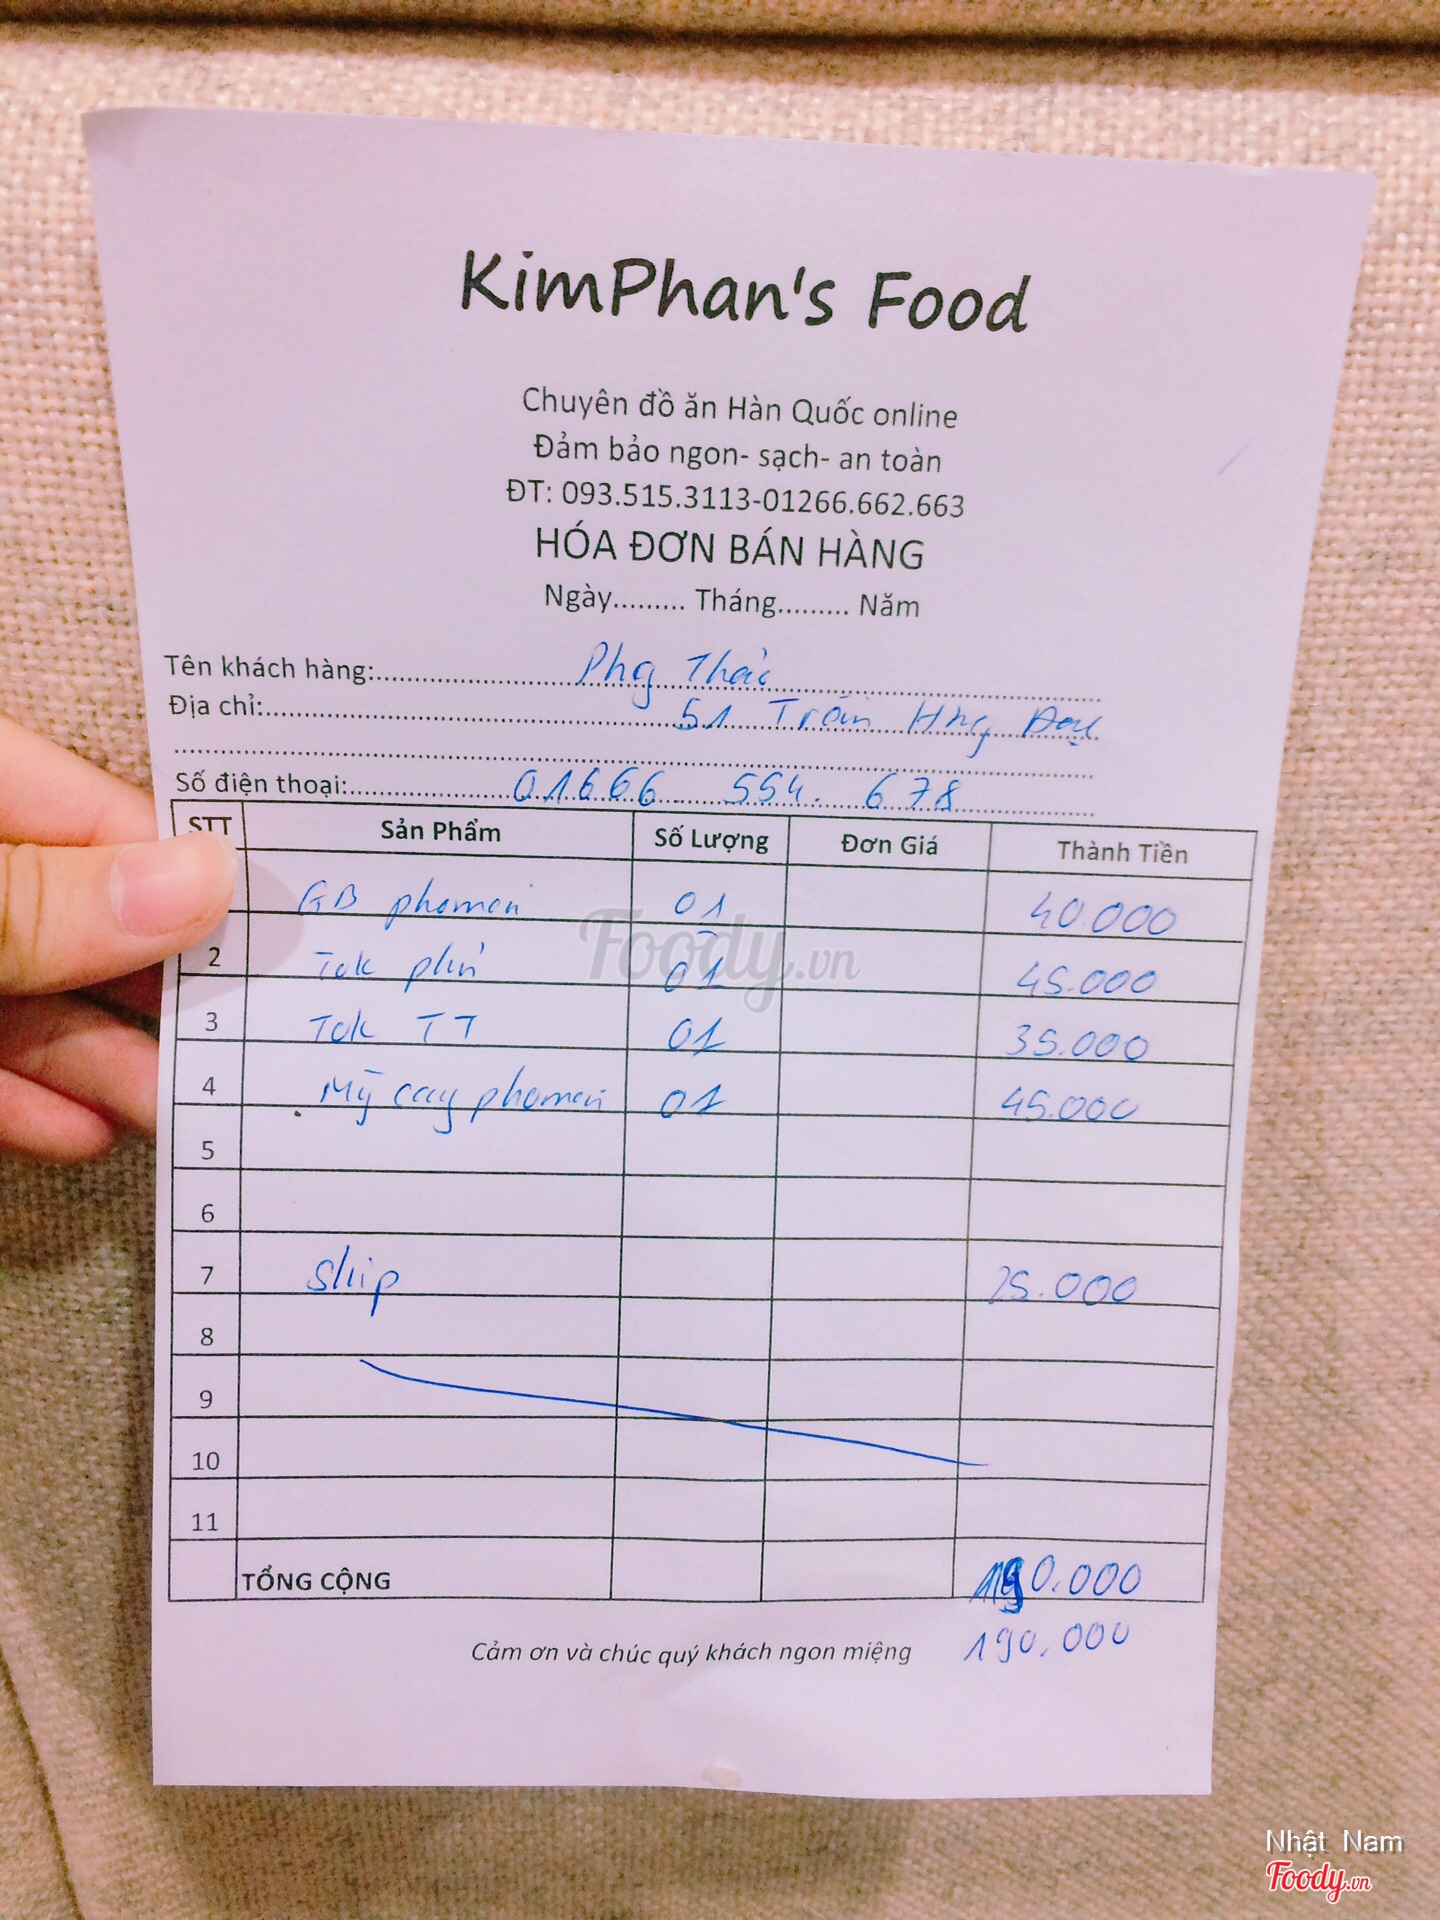 KimPhan's Food
Chuyên đồ ăn Hàn Quốc online
Đảm bảo ngon- sạch- an toàn
ĐT: 093.515.3113-01266.662.663
HÓA ĐƠN BÁN HÀNG
Ngày......... Tháng......... Năm
Tên khách hàng: Phg Thảo
Địa chỉ: 51 Trần Hưng Đạo
Số điện thoại: 01666 554. 678
STT Sản Phẩm Số Lượng Đơn Giá Thành Tiền
GB phomai 01 40.000
2 Tok phủ 01 45.000
3 Tok TT 01 35.000
4 Mỳ cay phomai 01 45.000
5
6
7 Ship 25.000
8
9
10
11
TỔNG CỘNG 190.000
190.000
Cảm ơn và chúc quý khách ngon miệng
Foody.vn
Nhật Nam
Foody.vn